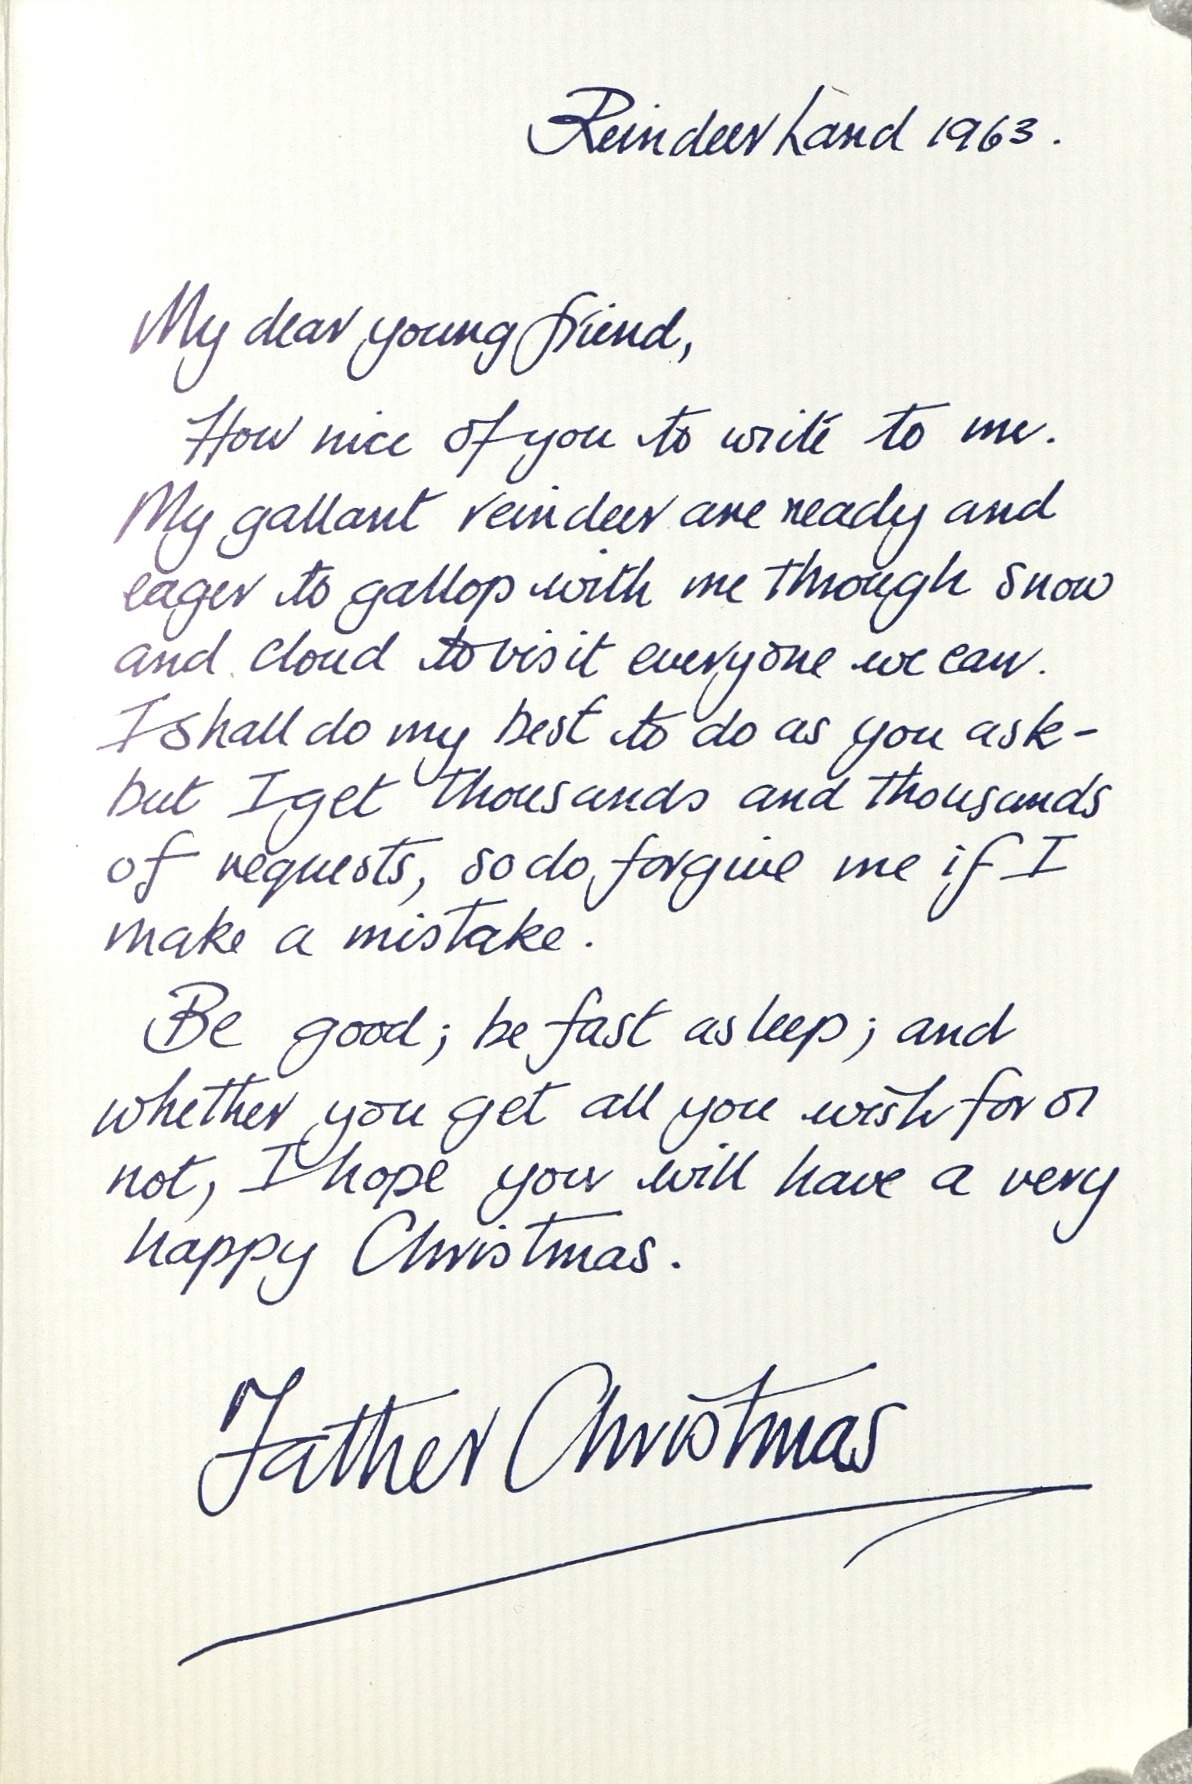 Reindeer Land 1963.
My dear young friend,
How nice of you to write to me.
My gallant reindeer are ready and
eager to gallop with me through snow
and cloud to visit everyone we can.
I shall do my best to do as you ask -
but I get thousands and thousands
of requests, so do forgive me if I
make a mistake.
Be good; be fast asleep; and
whether you get all you wish for or
not, I hope you will have a very
happy Christmas.
Father Christmas